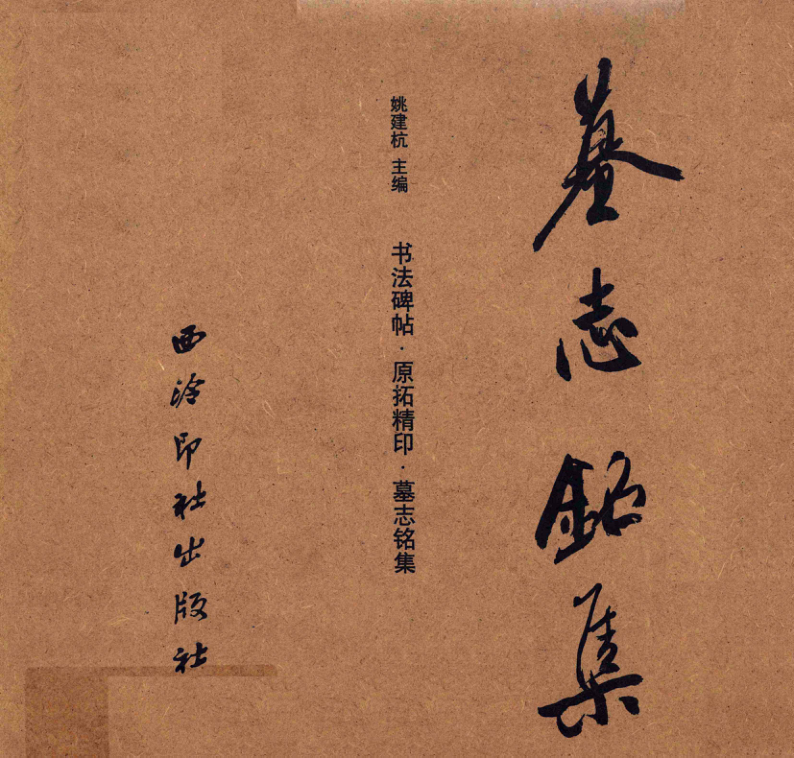 墓志銘集
姚建杭 主编
书法碑帖·原拓精印·墓志铭集
西泠印社出版社